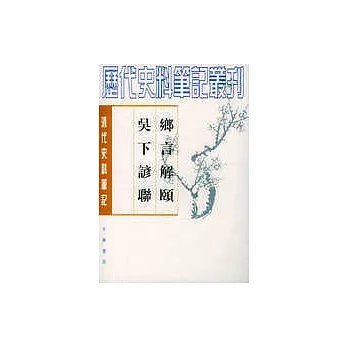 歷代史料筆記叢刊
鄉言解頤
吳下諺聯
清代史料筆記
中華書局